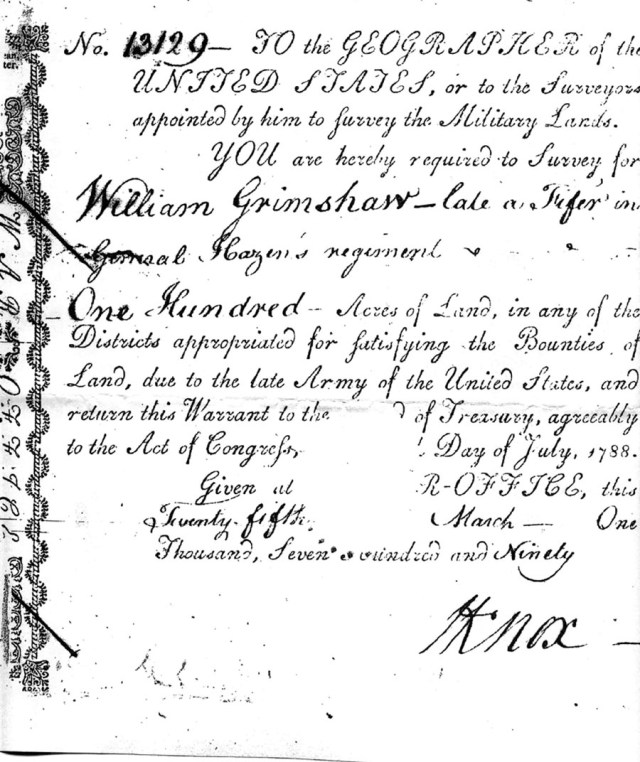 No. 13129 — TO the GEOGRAPHER of the
UNITED STATES, or to the Surveyors
appointed by him to survey the Military Lands.
YOU are hereby required to Survey for
William Grimshaw — late a Fifer in
General Hazen's regiment
One Hundred — Acres of Land, in any of the
Districts appropriated for satisfying the Bounties of
Land, due to the late Army of the United States, and
return this Warrant to the d of Treasury, agreeably
to the Act of Congress, Day of July, 1788.
Given at R-OFFICE, this
Twenty-fifth March — One
Thousand, Seven Hundred and Ninety
HKnox —